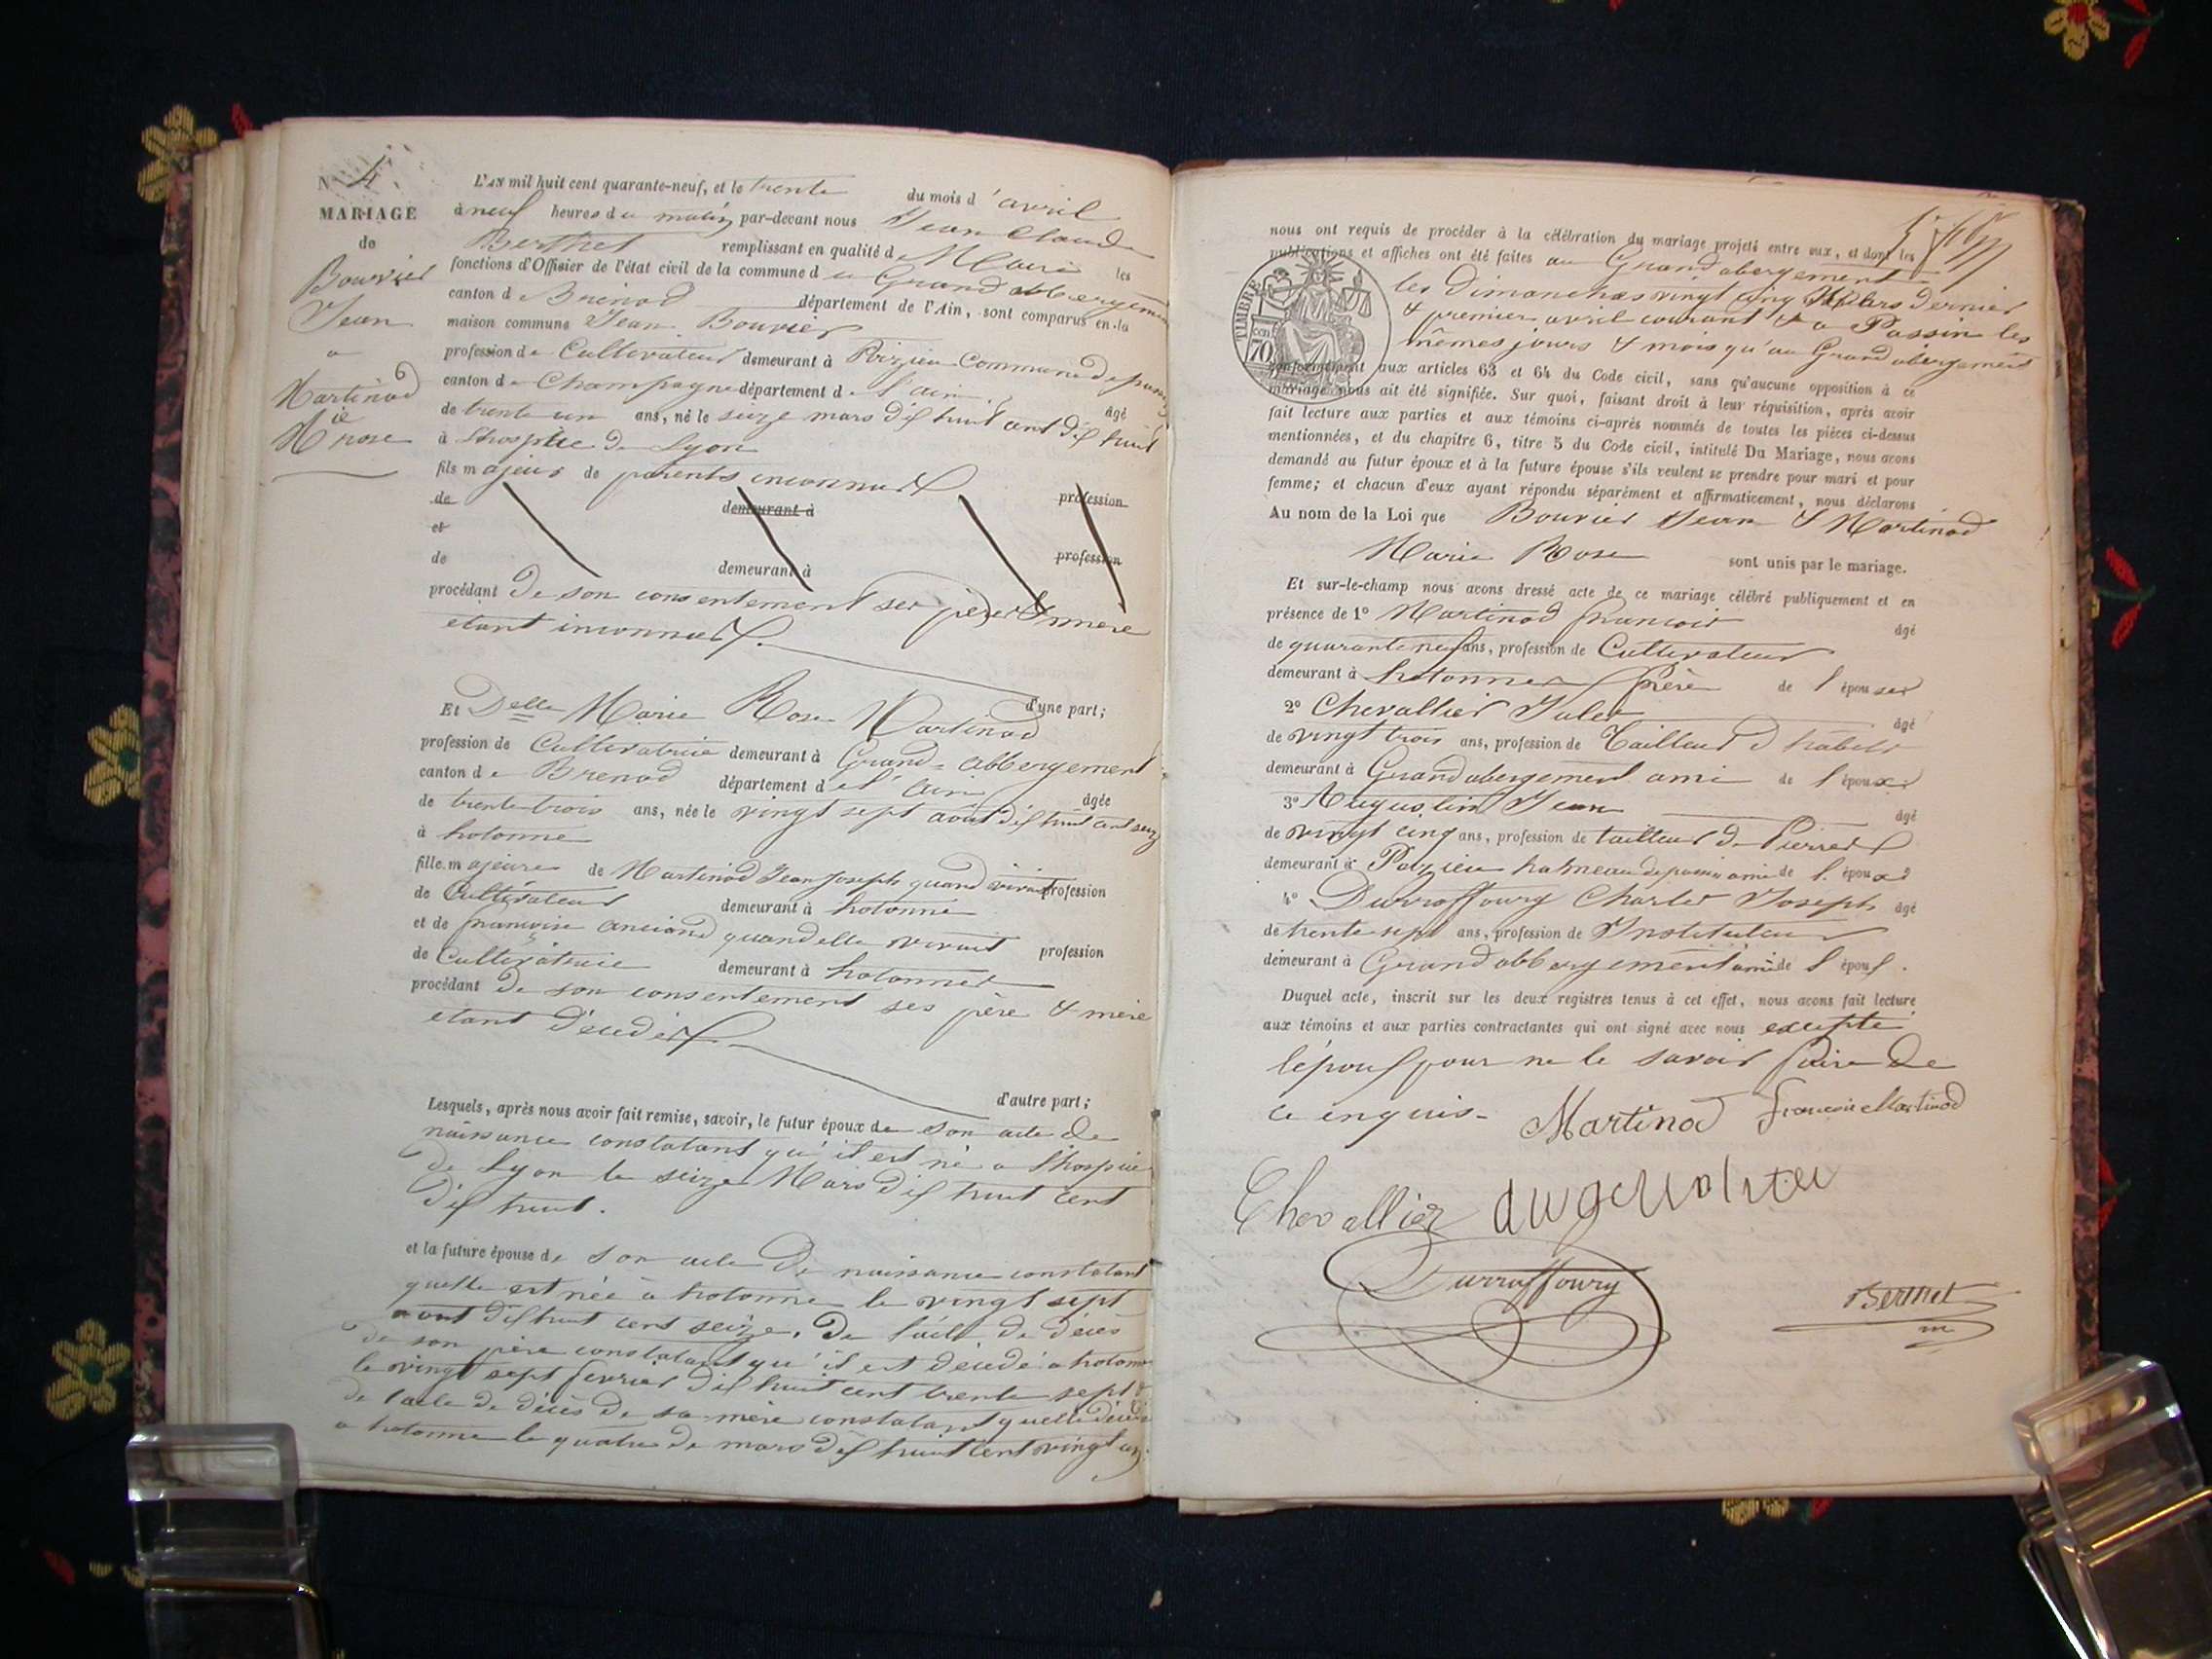 N° 4
MARIAGE
de
Bouvier
Jean
a
Martinod
Mie rose
L'AN mil huit cent quarante-neuf, et le trente du mois d'avril
à neuf heures du matin, par-devant nous Jean Claude
Berthet remplissant en qualité de Maire les
fonctions d'Officier de l'état civil de la commune du Grand abbergement
canton de Brénod département de l'Ain, sont comparus en la
maison commune Jean Bouvier
profession de Cultivateur demeurant à Poizieu Commune de passin
canton de Champagne département de l'ain âgé
de trente un ans, né le seize mars dix huit cent dix huit
à l'hospice de Lyon
fils majeur de parents inconnus
de demeurant à profession
et
de demeurant à profession
procédant de son consentement ses père & mère
étant inconnus
d'une part;
Et Delle Marie Rose Martinod
profession de Cultivatrice demeurant à Grand-abbergement
canton de Brenod département de l'ain âgée
de trente trois ans, née le vingt sept août dix huit cent seize
à hotonne
fille majeure de Martinod Jean Joseph quand vivait profession
de Cultivateur demeurant à hotonne
et de françoise anciand quand elle vivait profession
de Cultivatrice demeurant à hotonnes
procédant de son consentement ses père & mère
étant décédés
d'autre part;
Lesquels, après nous avoir fait remise, savoir, le futur époux de son acte de
naissance constatant qu'il est né a l'hospice
de Lyon le seize Mars dix huit cent
dix huit.
et la future épouse de son acte de naissance constatant
quelle est née à hotonne le vingt sept
aout dix huit cent seize, de l'acte de décès
de son père constatant qu'il est décédé a hotonne
le vingt sept fevrier dix huit cent trente sept &
de l'acte de décès de sa mère constatant quelle décédé
a hotonne le quatre de mars dix huit cent vingt un.
nous ont requis de procéder à la célébration du mariage projeté entre eux, et dont les
publications et affiches ont été faites au Grand abergement
les dimanches vingt cinq Mars dernier
& premier avril courant & a Passin les
mêmes jours & mois qu'au Grand abergement
conformément aux articles 63 et 64 du Code civil, sans qu'aucune opposition à ce
mariage nous ait été signifiée. Sur quoi, faisant droit à leur réquisition, après avoir
fait lecture aux parties et aux témoins ci-après nommés de toutes les pièces ci-dessus
mentionnées, et du chapitre 6, titre 5 du Code civil, intitulé Du Mariage, nous avons
demandé au futur époux et à la future épouse s'ils veulent se prendre pour mari et pour
femme; et chacun d'eux ayant répondu séparément et affirmativement, nous déclarons
Au nom de la Loi que Bouvier Jean & Martinod
Marie Rose sont unis par le mariage.
Et sur-le-champ nous avons dressé acte de ce mariage célébré publiquement et en
présence de 1° Martinod françois âgé
de quarante neuf ans, profession de Cultivateur
demeurant à hotonnes frère de l'épouse
2° Chevallier Jules âgé
de vingt trois ans, profession de Tailleur d'habits
demeurant à Grand abergement ami de l'époux
3° Augustin Jean âgé
de vingt cinq ans, profession de tailleur de Pierres
demeurant à Poizieu hameau de passin ami de l'époux
4° Durraffourg Charles Joseph âgé
de trente sept ans, profession de Instituteur
demeurant à Grand abbergement ami de l'époux.
Duquel acte, inscrit sur les deux registres tenus à cet effet, nous avons fait lecture
aux témoins et aux parties contractantes qui ont signé avec nous excepté
l'époux pour ne le savoir faire de
ce enquis-
Martinod françois Martinod
Chevallier
Durraffourg
Berthet
m
TIMBRE
70 cen